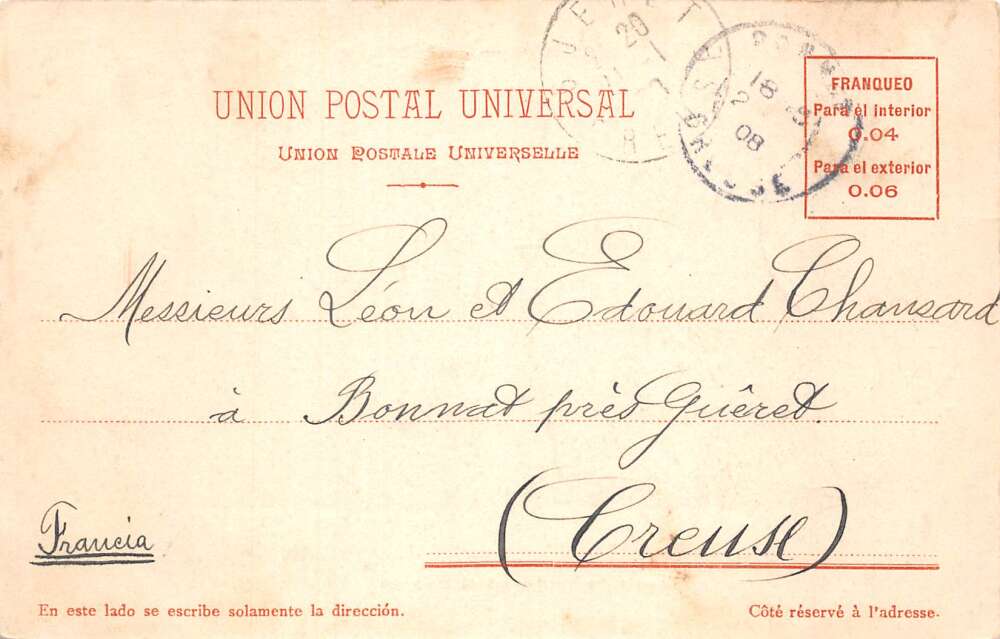 UNION POSTAL UNIVERSAL
UNION POSTALE UNIVERSELLE
FRANQUEO
Para el interior
0.04
Para el exterior
0.06
20
18
2
08
Messieurs Léon et Edouard Chansard
à Bonnat près Guéret.
(Creuse)
Francia
En este lado se escribe solamente la dirección.
Côté réservé à l'adresse.